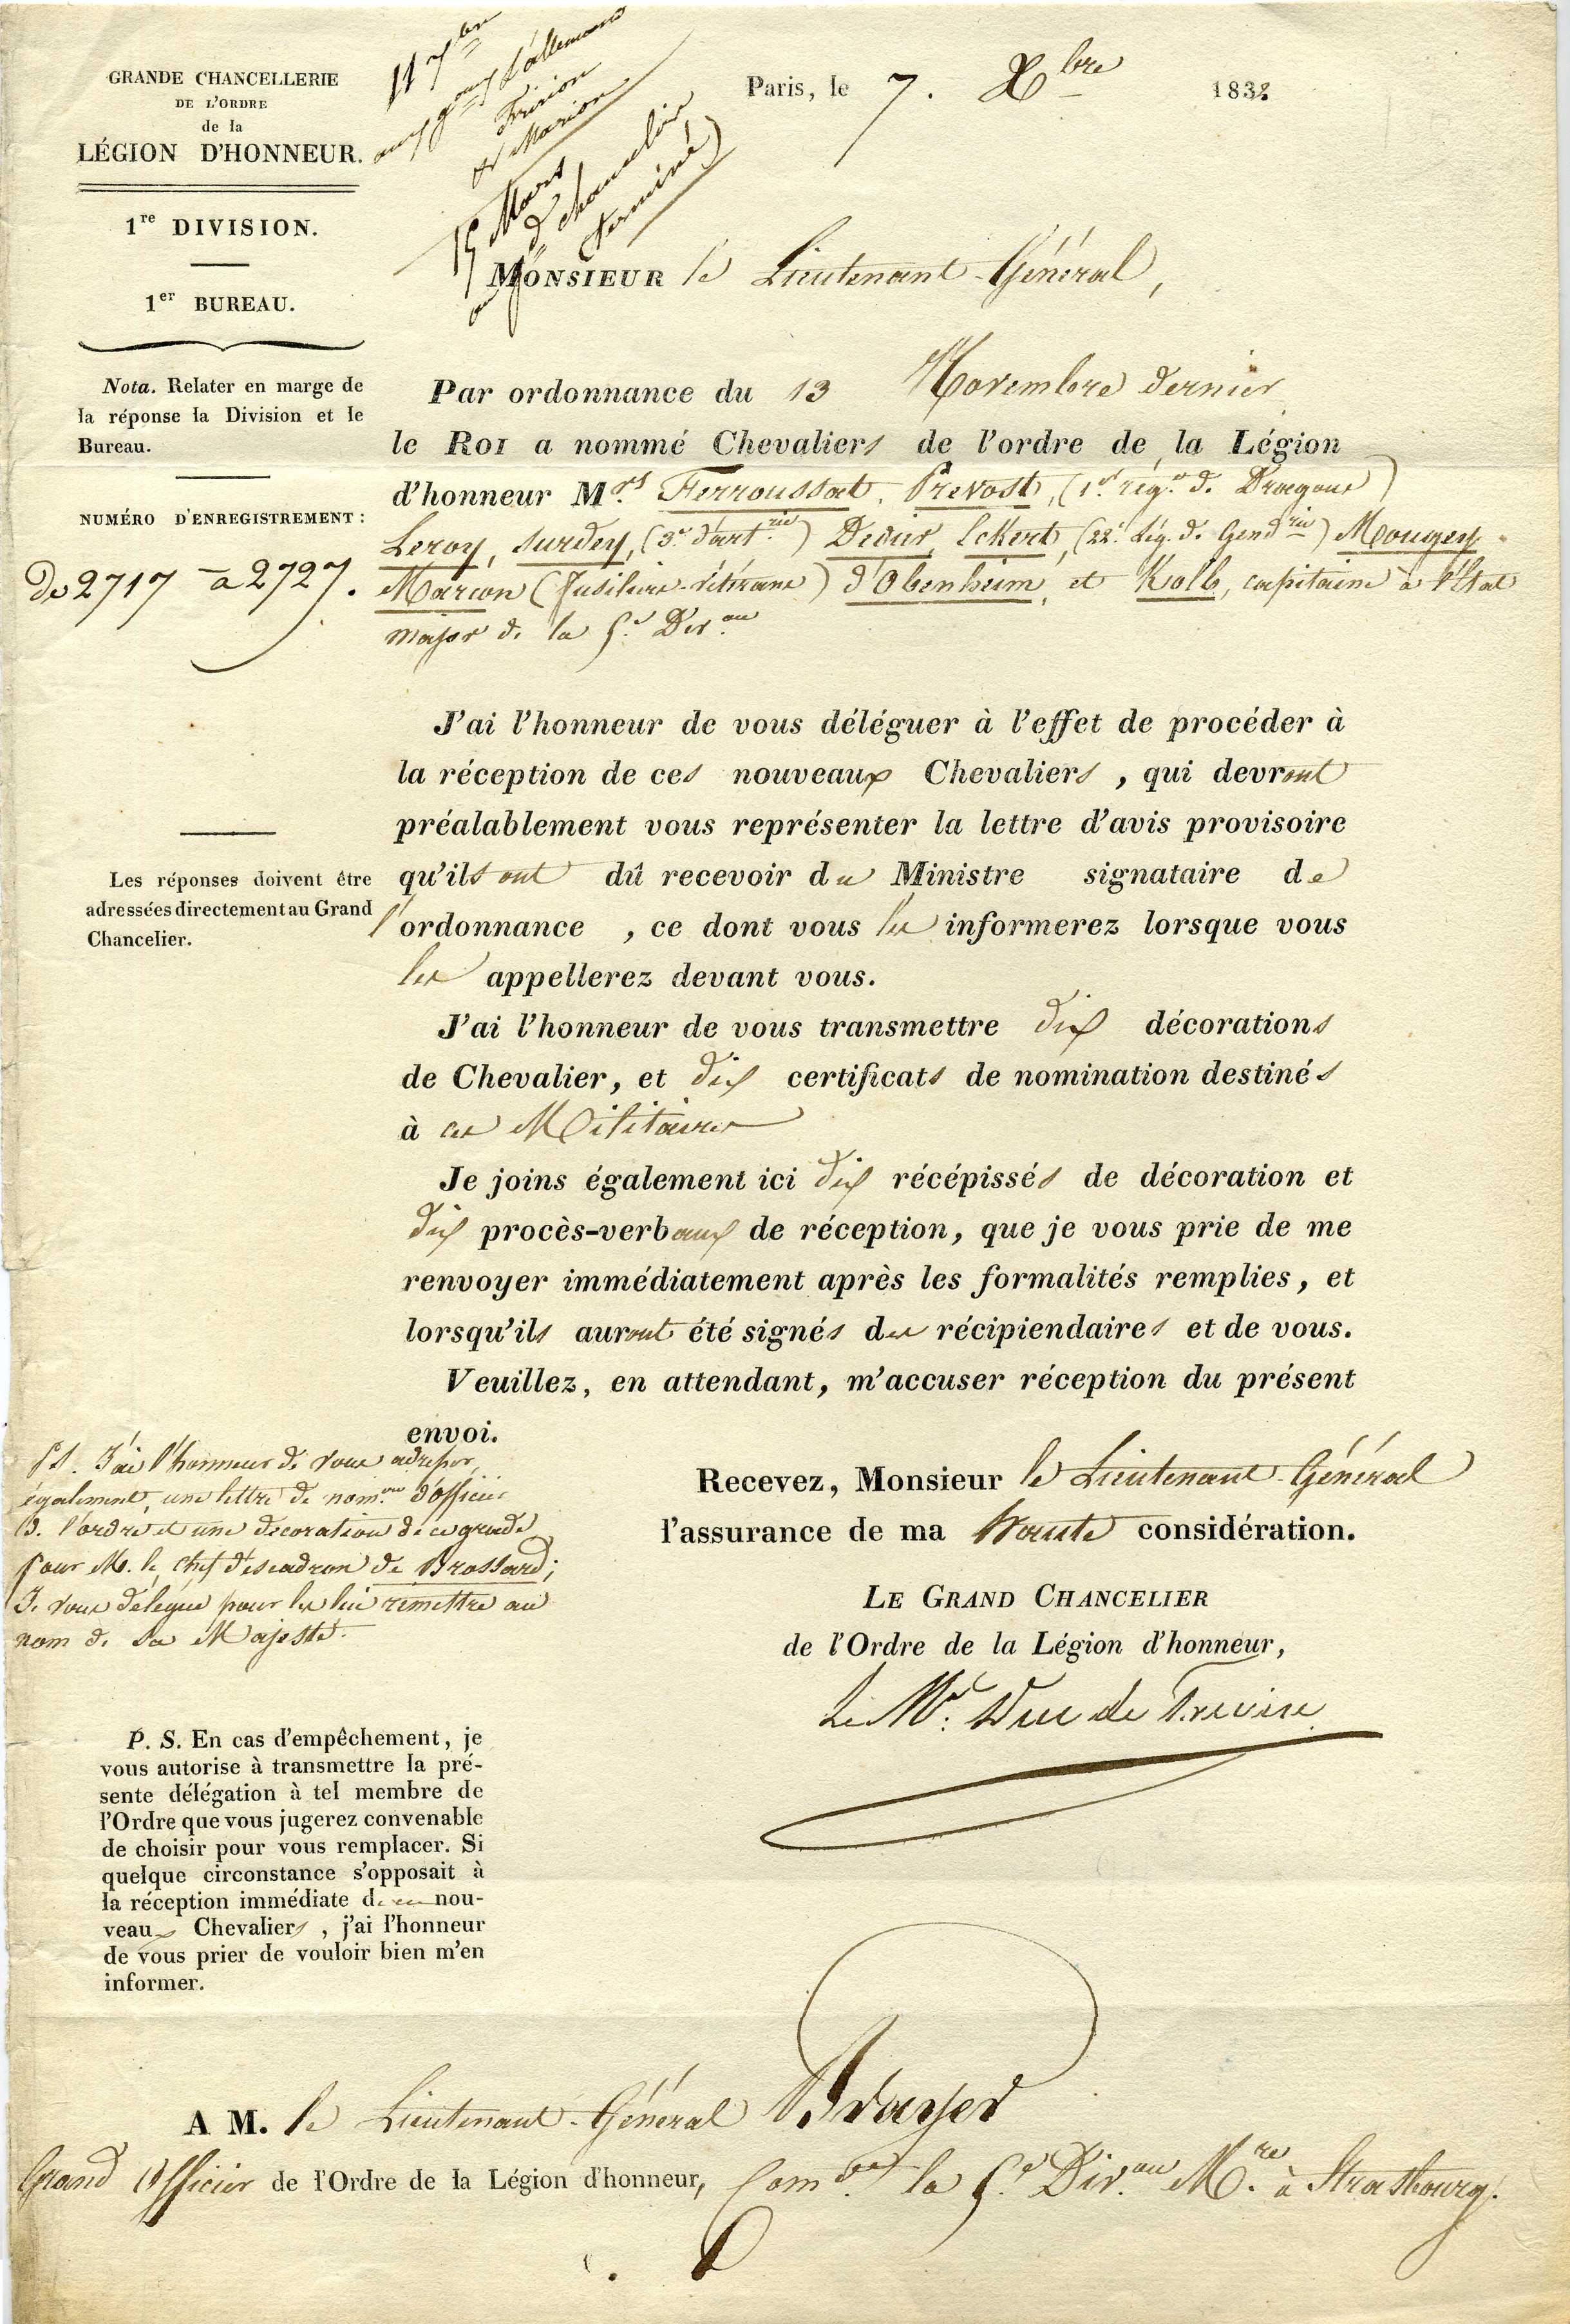 GRANDE CHANCELLERIE
DE L'ORDRE
de la
LÉGION D'HONNEUR.
1re DIVISION.
1er BUREAU.
Nota. Relater en marge de
la réponse la Division et le
Bureau.
NUMÉRO D'ENREGISTREMENT :
De 2717 à 2727.
Les réponses doivent être
adressées directement au Grand
Chancelier.
11 7bre
aux gaux Lallemand
Fririon
et Marion
15 Mars
au gd chancelier
(terminé)
Paris, le 7. Xbre 1832
MONSIEUR le Lieutenant-Général,
Par ordonnance du 13 Novembre dernier
le ROI a nommé Chevaliers de l'ordre de la Légion
d'honneur Mrs. Ferroussat, Prevost, (1er rég.t de Dragons)
Leroy, Surdey, (3e d'artrie) Dedier, Eckert, (22e Lég. de Gendrie) Mougey
Marcon (fusiliers-vétérans) d'Obenheim, et Kolb, capitaine à l'État
major de la 5e Divon
J'ai l'honneur de vous déléguer à l'effet de procéder à
la réception de ces nouveaux Chevaliers , qui devront
préalablement vous représenter la lettre d'avis provisoire
qu'ils ont dû recevoir du Ministre signataire de
l'ordonnance , ce dont vous les informerez lorsque vous
les appellerez devant vous.
J'ai l'honneur de vous transmettre dix décorations
de Chevalier, et dix certificats de nomination destinés
à ces Militaires
Je joins également ici dix récépissés de décoration et
dix procès-verbaux de réception, que je vous prie de me
renvoyer immédiatement après les formalités remplies, et
lorsqu'ils auront été signés des récipiendaires et de vous.
Veuillez, en attendant, m'accuser réception du présent
envoi.
Recevez, Monsieur le Lieutenant-Général
l'assurance de ma haute considération.
LE GRAND CHANCELIER
de l'Ordre de la Légion d'honneur,
Le Mal. Duc de Trevise
PS. J'ai l'honneur de vous adresser
également, une lettre de nomon d'officier
de l'ordre et une décoration de ce grade
pour M. le chef d'escadron de Brossard;
Je vous délègue pour les lui remettre au
nom de Sa Majesté.
P. S. En cas d'empêchement, je
vous autorise à transmettre la pré-
sente délégation à tel membre de
l'Ordre que vous jugerez convenable
de choisir pour vous remplacer. Si
quelque circonstance s'opposait à
la réception immédiate de ces nou-
veaux Chevaliers , j'ai l'honneur
de vous prier de vouloir bien m'en
informer.
A M. le Lieutenant-Général Brayer
Grand Officier de l'Ordre de la Légion d'honneur, Comdt la 5e Divon Mre à Strasbourg.